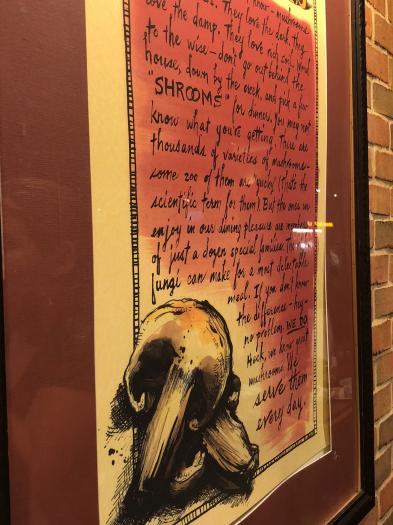 know - mushrooms
love the damp. They love the dark, they
love the damp. They love rich soil. Word
to the wise - don't go out behind the
house, down by the creek, and pick a few
"SHROOMS" for dinner. You may not
know what you're getting. There are
thousands of varieties of mushrooms -
some 200 of them are yucky (that's the
scientific term for them). But the ones we
enjoy in our dining pleasure are members
of just a dozen special families. These
fungi can make for a most delectable
meal. If you don't know
the difference - hey -
no problem. WE DO.
Heck, we know great
mushrooms. We
serve them
every day.